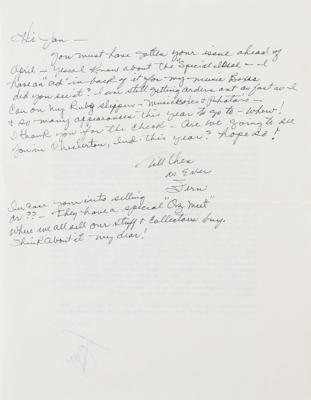 Hi Jan —
You must have gotten your issue ahead of
April — I know about the Special Issue — I
have an "ad" in back of it for my music boxes
did you see it? I am still getting orders out as fast as I
Can on my Ruby slippers — Musicboxes & Photos —
& so many appearances this year to go to — whew!
I thank you for the check — Are we going to see
you in Chesterton, Ind. this year? hope so!
Till then
as Ever
Fern
In case your into selling
or ?? — they have a special "Oz Meet"
Where we all sell our stuff & Collectors buy.
Think about it my dear!